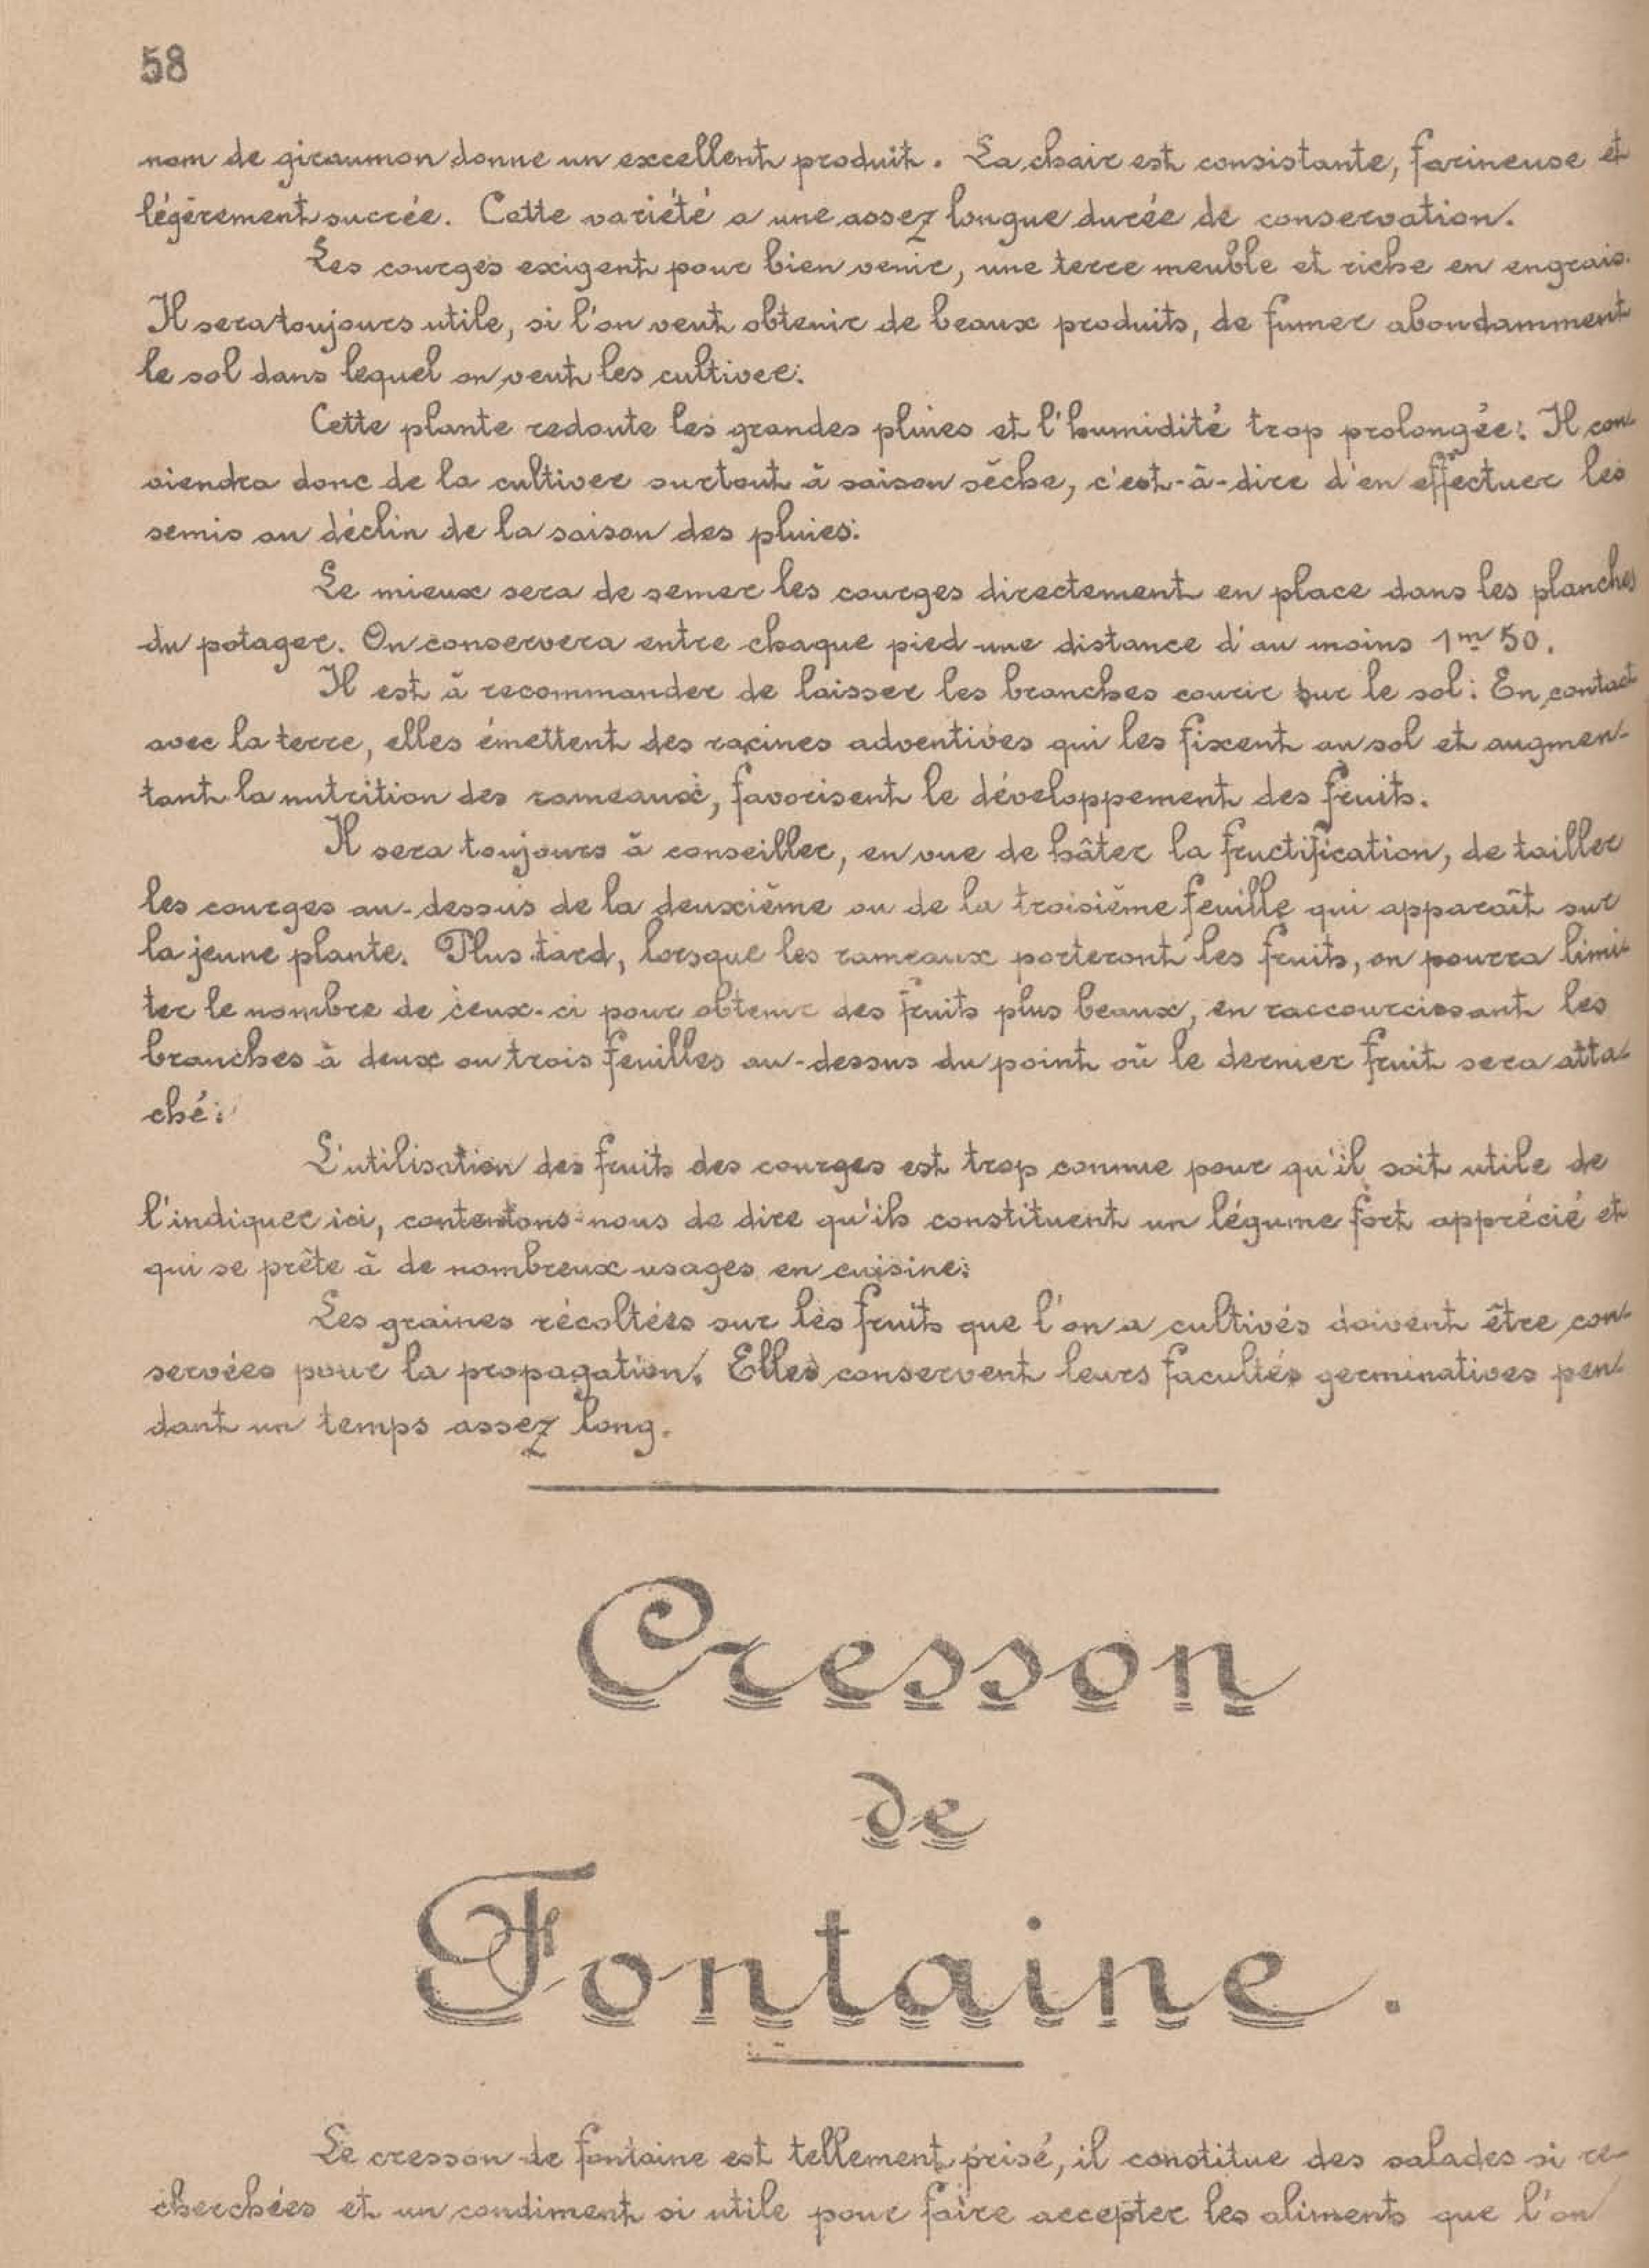 58
nom de giraumon donne un excellent produit. La chair est consistante, farineuse et
légèrement sucrée. Cette variété a une assez longue durée de conservation.
Les courges exigent pour bien venir, une terre meuble et riche en engrais.
Il sera toujours utile, si l'on veut obtenir de beaux produits, de fumer abondamment
le sol dans lequel on veut les cultiver.
Cette plante redoute les grandes pluies et l'humidité trop prolongée. Il con-
viendra donc de la cultiver surtout à saison sèche, c'est-à-dire d'en effectuer les
semis au déclin de la saison des pluies.
Le mieux sera de semer les courges directement en place dans les planches
du potager. On conservera entre chaque pied une distance d'au moins 1m 50.
Il est à recommander de laisser les branches courir sur le sol. En contact
avec la terre, elles émettent des racines adventives qui les fixent au sol et augmen-
tant la nutrition des rameaux, favorisent le développement des fruits.
Il sera toujours à conseiller, en vue de hâter la fructification, de tailler
les courges au-dessus de la deuxième ou de la troisième feuille qui apparaît sur
la jeune plante. Plus tard, lorsque les rameaux porteront les fruits, on pourra limi-
ter le nombre de ceux-ci pour obtenir des fruits plus beaux, en raccourcissant les
branches à deux ou trois feuilles au-dessus du point où le dernier fruit sera atta-
ché.
L'utilisation des fruits des courges est trop connue pour qu'il soit utile de
l'indiquer ici, contentons-nous de dire qu'ils constituent un légume fort apprécié et
qui se prête à de nombreux usages en cuisine.
Les graines récoltées sur les fruits que l'on a cultivés doivent être con-
servées pour la propagation. Elles conservent leurs facultés germinatives pen-
dant un temps assez long.
Cresson
de
Fontaine.
Le cresson de fontaine est tellement prisé, il constitue des salades si re-
cherchées et un condiment si utile pour faire accepter les aliments que l'on